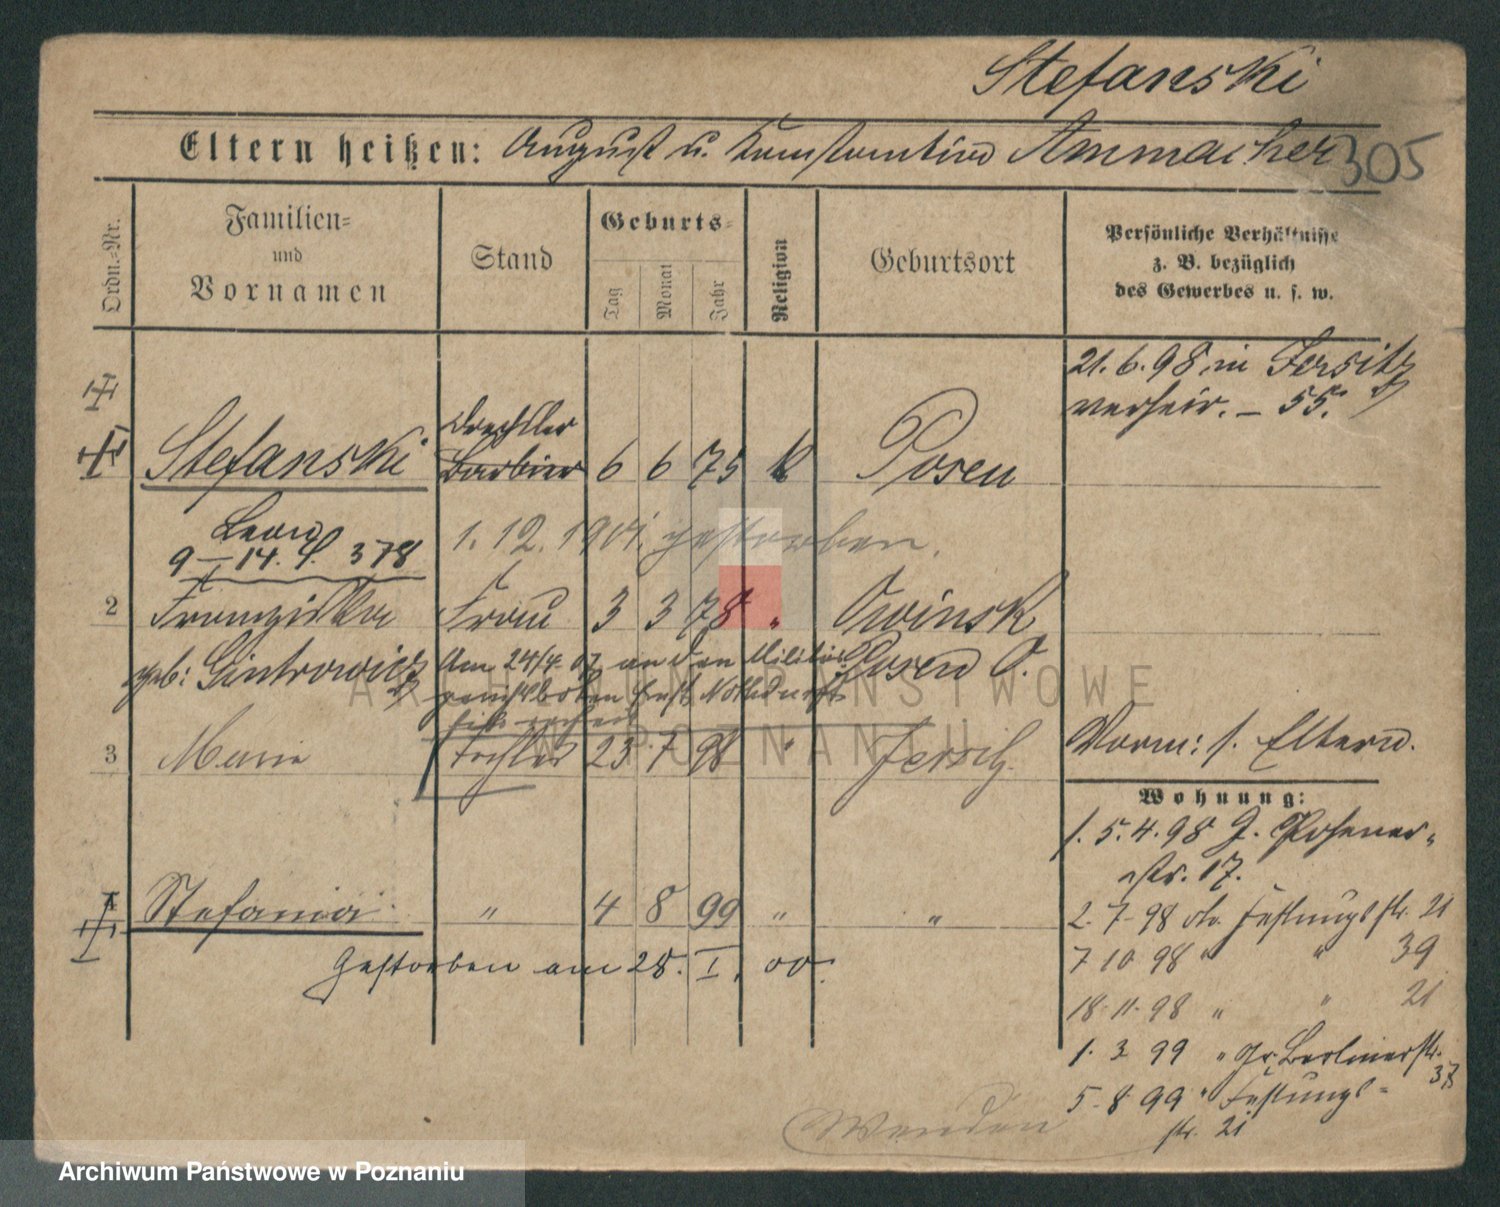 Stefanski
Eltern heißen: August u. Konstantina Ammacher 305
Ordn.-Nr.
Familien-
und
Vornamen
Stand
Geburts-
Tag
Monat
Jahr
Religion
Geburtsort
Persönliche Verhältnisse
z. B. bezüglich
des Gewerbes u. s. w.
21. 6. 98 in Jersitz
verheir. – 55.
Drechsler
Stefanski Barbier 6 6 75 K Posen
Leon
9 – 14. 378
1. 12. 1901. gestorben.
2 Franziska Frau 3 3 78 " Owinsk
geb: Gintrowicz Am 24/4 07 an den Militär Posen O.
Ernst
3 Marie Tochter 23 7 98 " Jersch.
Vorm: s. Eltern.
Wohnung:
1. 5. 4. 98 G. Posener-
str. 17.
4 Stefania " 4 8 99 " "
2. 7. 98 do. Festungsstr. 21
Gestorben am 28. I. 00.
7 10 98 " " 39
18. 11. 98 " " 21
1. 3 99 " Gr. Berlinerstr.
37
5. 8 99 " Festungs-
str. 21
Wenden
ARCHIWUM PAŃSTWOWE
W POZNANIU
Archiwum Państwowe w Poznaniu